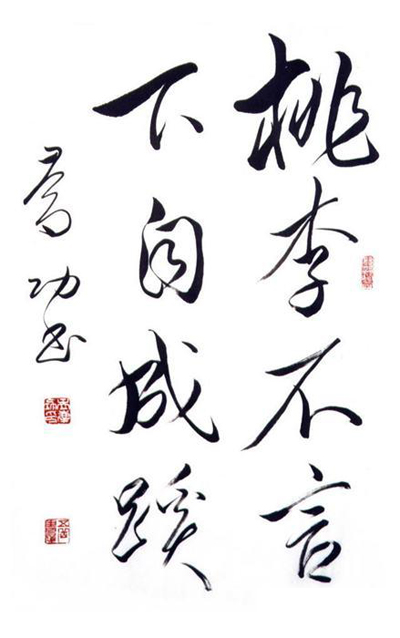 桃李不言
下自成蹊
功书